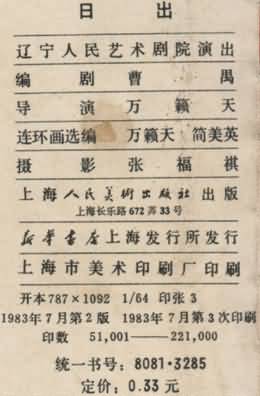 日出
辽宁人民艺术剧院演出
编剧 曹禺
导演 万籁天
连环画选编 万籁天 简美英
摄影 张福祺
上海人民美術出版社出版
上海长乐路 672 弄 33 号
新华书店上海发行所发行
上海市美术印刷厂印刷
开本 787×1092 1/64 印张 3
1983 年 7 月第 2 版 1983 年 7 月第 3 次印刷
印数 51,001——221,000
统一书号：8081·3285
定价：0.33 元